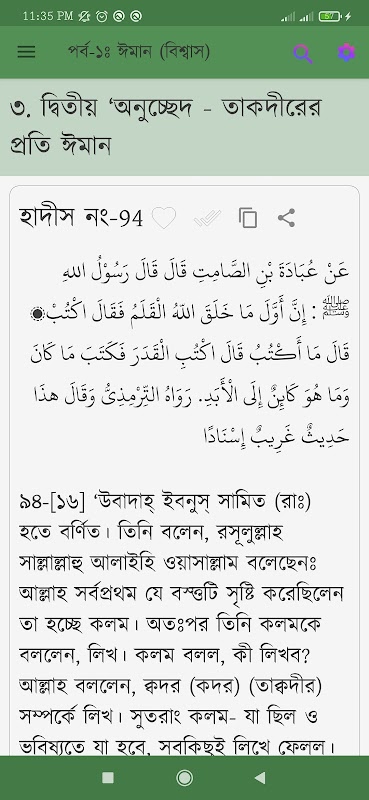 11:35 PM
57
পর্ব-১ঃ ঈমান (বিশ্বাস)
৩. দ্বিতীয় ‘অনুচ্ছেদ - তাকদীরের
প্রতি ঈমান
হাদীস নং-94
عَنْ عُبَادَةَ بْنِ الصَّامِتِ قَالَ قَالَ رَسُوْلُ اللهِ
ﷺ : إِنَّ أَوَّلَ مَا خَلَقَ اللّهُ الْقَلَمُ فَقَالَ اكْتُبْ
قَالَ مَا أَكْتُبُ قَالَ اكْتُبِ الْقَدَرَ فَكَتَبَ مَا كَانَ
وَمَا هُوَ كَائِنٌ إِلَى الْأَبَدِ. رَوَاهُ التِّرْمِذِىُّ وَقَالَ هذَا
حَدِيْثٌ غَرِيْبٌ إِسْنَادًا
৯৪-[১৬] ‘উবাদাহ্ ইবনুস্ সামিত (রাঃ)
হতে বর্ণিত। তিনি বলেন, রসূলুল্লাহ
সাল্লাল্লাহু আলাইহি ওয়াসাল্লাম বলেছেনঃ
আল্লাহ সর্বপ্রথম যে বস্তুটি সৃষ্টি করেছিলেন
তা হচ্ছে কলম। অতঃপর তিনি কলমকে
বললেন, লিখ। কলম বলল, কী লিখব?
আল্লাহ বললেন, ক্বদর (কদর) (তাক্বদীর)
সম্পর্কে লিখ। সুতরাং কলম- যা ছিল ও
ভবিষ্যতে যা হবে, সবকিছুই লিখে ফেলল।